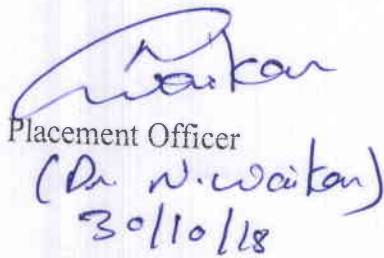 Waikar
Placement Officer
(Dr. N. Waikar)
30/10/18